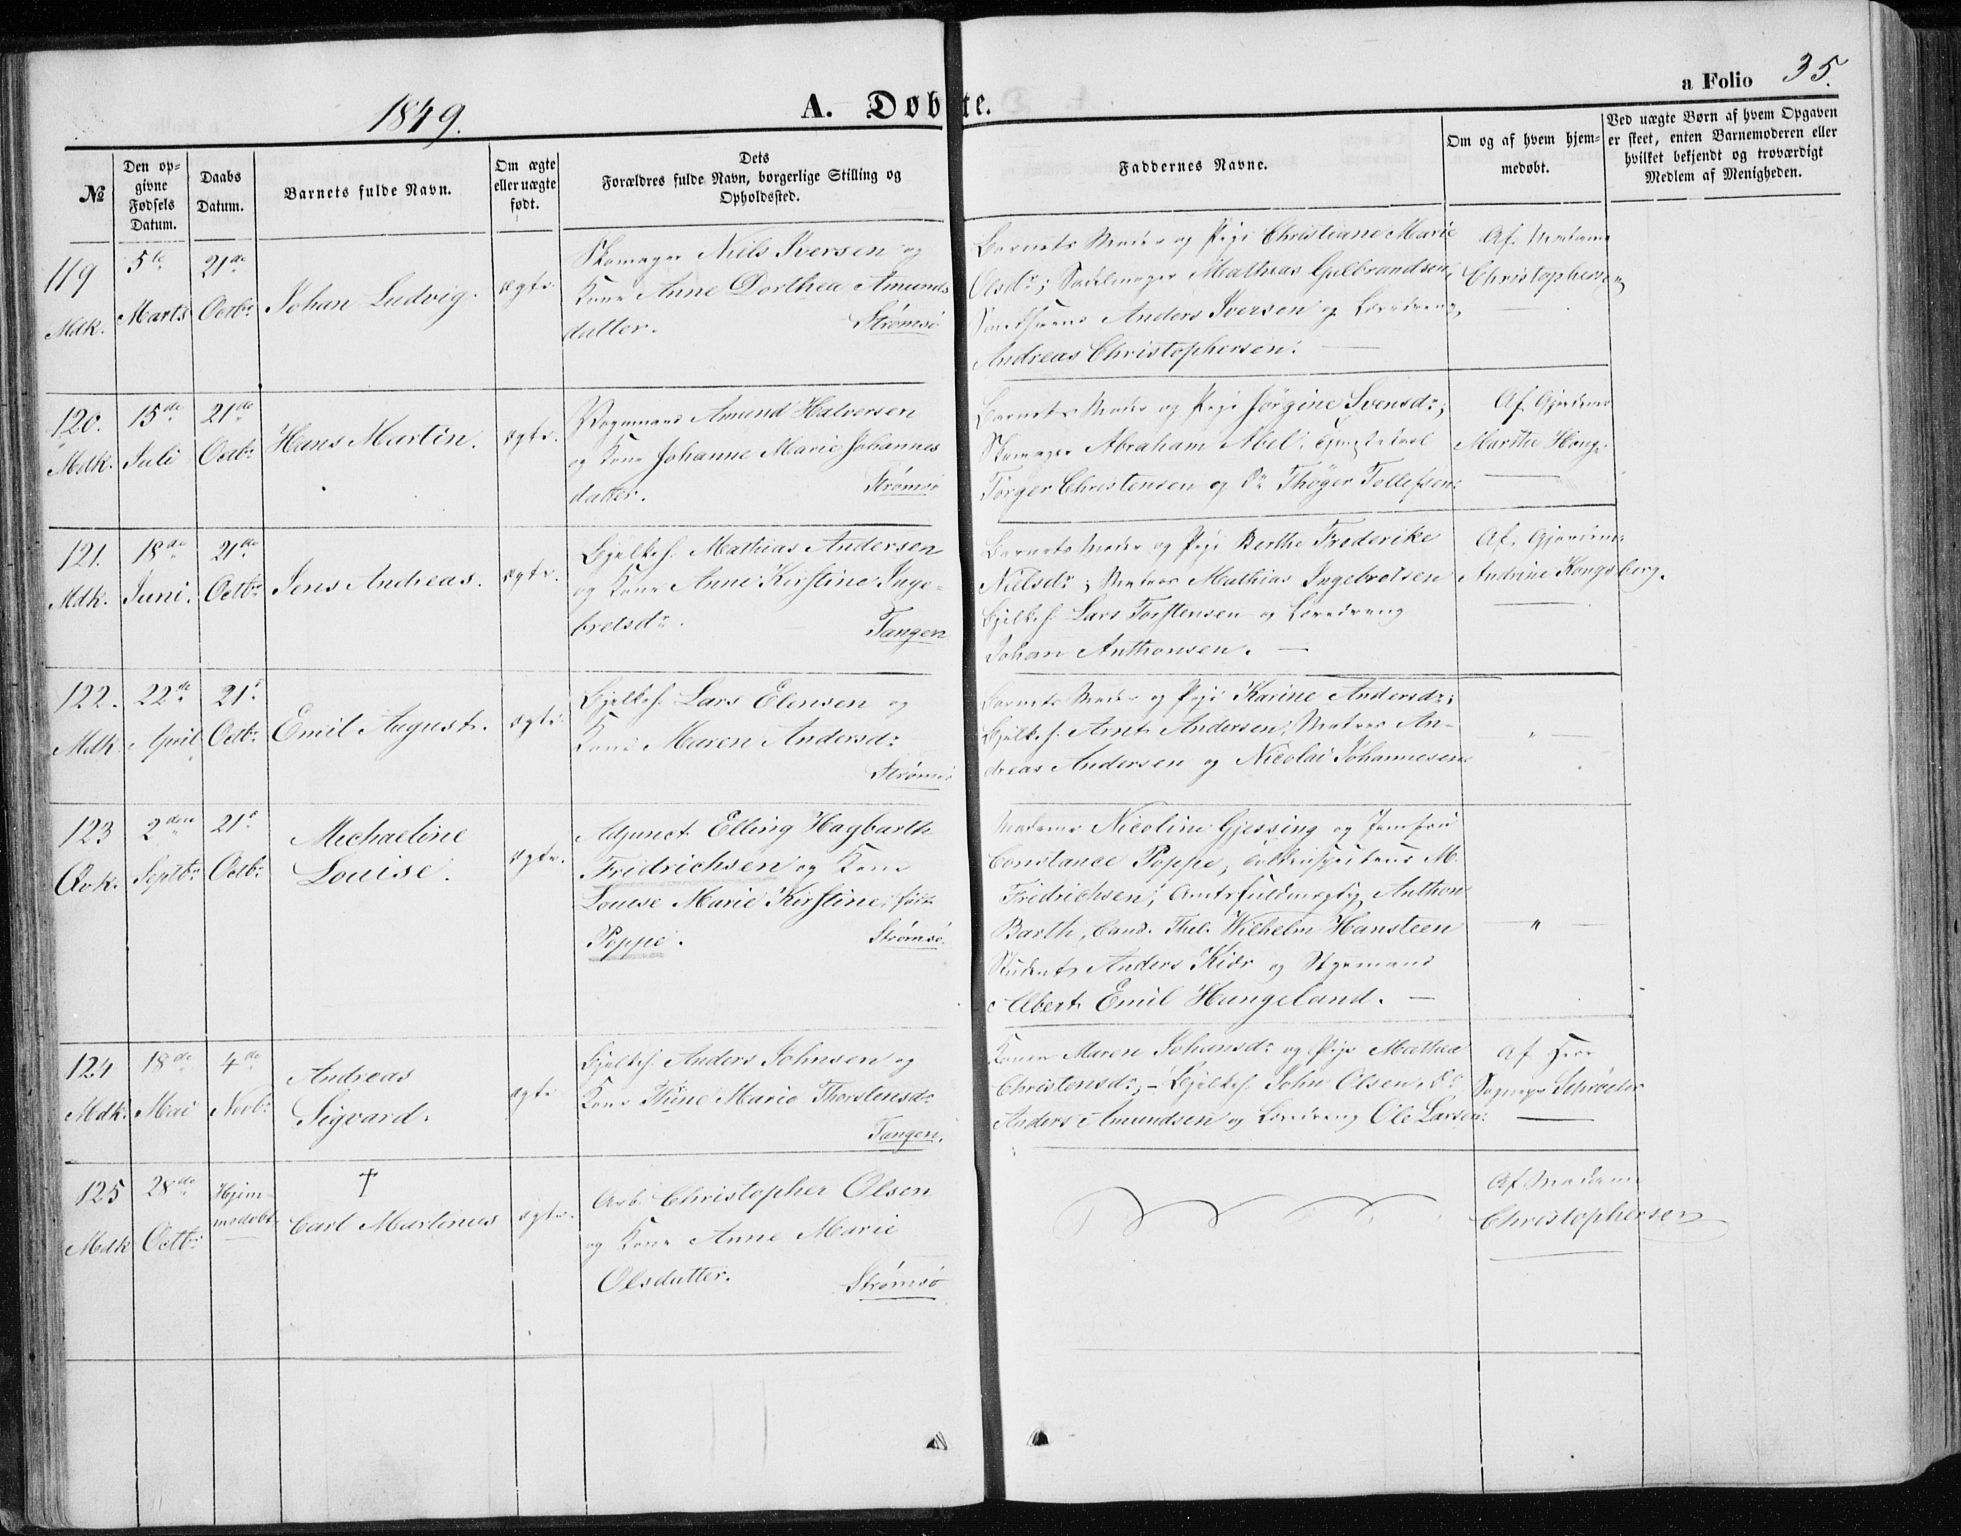 1849.
A. Døbte.
a Folio 35.
№
Den op-
givne
Fødsels
Datum.
Daabs
Datum.
Barnets fulde Navn.
Om ægte
eller uægte
født.
Dets
Forældres fulde Navn, borgerlige Stilling og
Opholdssted.
Faddernes Navne.
Om og af hvem hjem-
medøbt.
Ved uægte Børn af hvem Opgaven
er skeet, enten Barnemoderen eller
hvilket bekjendt og troværdigt
Medlem af Menigheden.
119
Mdk.
5te
Marts
21de
Octbr
Johan Ludvig.
ægte.
Skomager Niels Iversen og
Kone Anne Dorthea Amunds
datter. Strømsø
Barnets Moder og Pige Christiane Marie
Olsdr; Sadelmager Mathias Gulbrandsen,
Anders Iversen og Læredreng
Andreas Christophersen.
Af Madame
Christophersen
120.
Mdk.
15de
Juli
21de
Octbr
Hans Martin.
ægte.
Amund Halvorsen
og Kone Johanne Marie Johannes
datter. Strømsø
Barnets Moder og Pige Jørgine Svensdr;
Skomager Abraham Abel,
Torger Christensen og Do Thøger Tollefsen.
Af Gjordem
Marthe Houg.
121.
Mdk.
18de
Juni.
21de
Octbr
Jens Andreas.
ægte.
Bjelkeh. Mathias Andersen
og Kone Anne Kirstine Inge-
bretsdr. Tangen
Barnets Moder og Pige Berthe Frederike
Nielsdr; Matros Mathias Ingebretsen
Bjelkeh. Lars Torstensen og Læredreng
Johan Anthonsen.
Af Gjordem
Andrine Kongsberg.
122.
Mdk
22de
April
21e
Octbr
Emil August.
ægte.
Bjelkeh. Lars Elensen og
Kone Maren Andersdr
Strømsø
Barnets Moder og Pige Karine Andersdr;
Bjelkeh. Arnt Andersen, Matros An-
dreas Andersen og Nicolai Johannesen.
"
123
Qvk.
2den
Septbr
21e
Octbr
Michaeline
Louise.
ægte.
Adjunct Elling Hagbarth
Fridrichsen og Kone
Louise Marie Kirstine, født
Poppe. Strømsø.
Madame Nicoline Gjessing og Jomfru
Constance Poppe, M.
Fridrichsen, Amtsfuldmægtig Anthon
Barth, Cand. Theol. Wilhelm Hansteen
Student Anders Kiær og Styrmand
Albert Emil Hungeland.
"
124
Mdk.
18de
Mai
4de
Novbr
Andreas
Sigvard.
ægte
Bjelkeh. Anders Johnsen og
Kone Thine Marie Thorstensdr
Tangen.
Konen Maren Johansdr og Pige Mathea
Christensdr; Bjelkeh. John Olsen, Do
Anders Amundsen og Læredreng Ole Larsen.
Af Herr
Sognepr Schrøeter
125
Mdk
28de
Octbr
Hjem-
medøbt
†
Carl Martinus
ægte.
Arb. Christopher Olsen
og Kone Anne Marie
Olsdatter. Strømsø
Af Madame
Christophersen